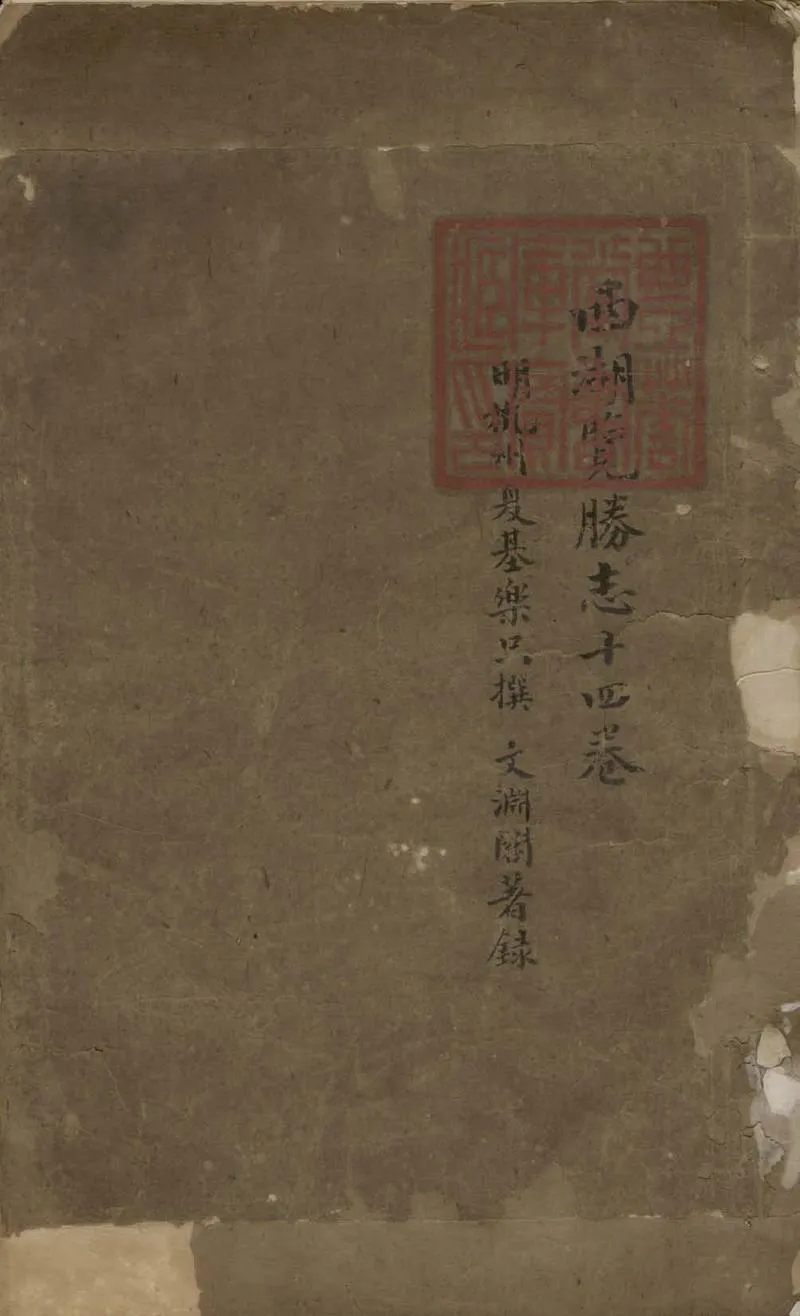 西湖覽勝志十四卷
明杭州夏基樂只撰 文淵閣著録